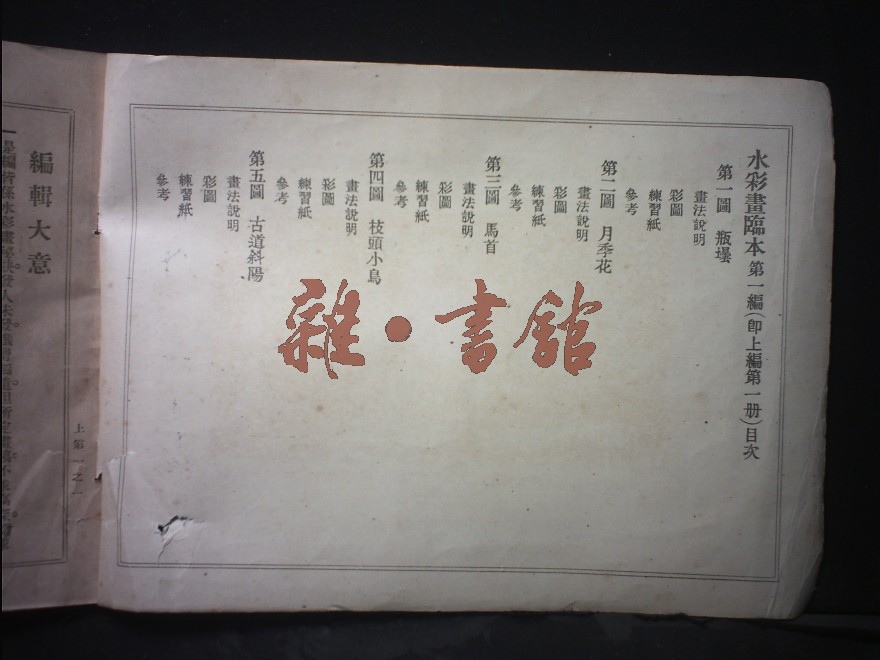 水彩畫臨本第一編(即上編第一册)目次
第一圖 瓶壜
畫法說明
彩圖
練習紙
參考
第二圖 月季花
畫法說明
彩圖
練習紙
參考
第三圖 馬首
畫法說明
彩圖
練習紙
參考
第四圖 枝頭小鳥
畫法說明
彩圖
練習紙
參考
第五圖 古道斜陽
畫法說明
彩圖
練習紙
參考
雜·書館
上第一之一
編輯大意
一是編